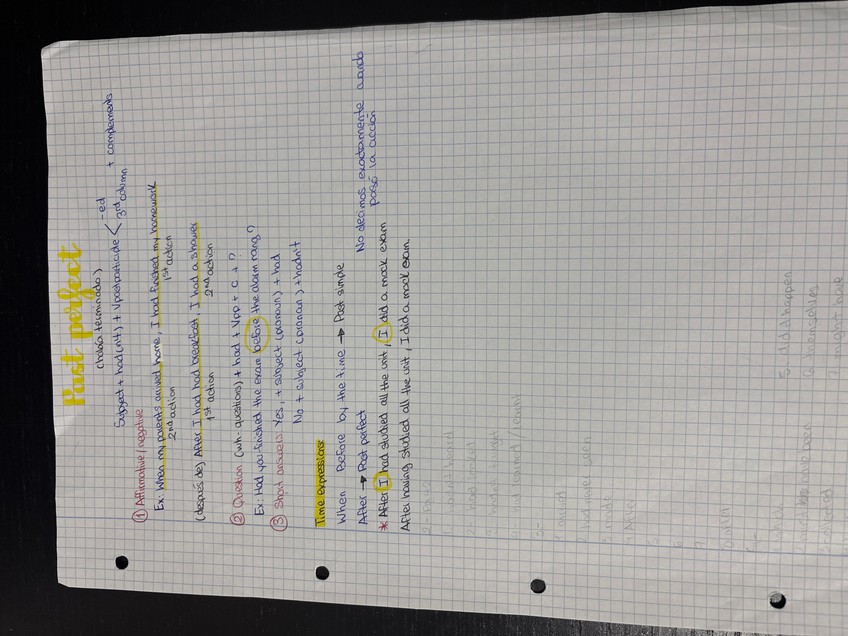 Past perfect
(había terminado)
Subject + had(n't) + Vpastparticiple < -ed
3rd column + complements
① Affirmative/negative
Ex: When my parents arrived home, I had finished my homework
2nd action 1st action
(después de) After I had had breakfast, I had a shower
1st action 2nd action
② Question (wh-questions) + had + Vpp + c + ?
Ex: Had you finished the exam before the alarm rang?
③ Short answers: Yes, + subject (pronoun) + had
No + subject (pronoun) + hadn't
Time expressions:
When Before by the time → Past simple
After → Past perfect No decimos exactamente cuando
pasó la acción
* After I had studied all the unit, I did a mock exam
After having studied all the unit, I did a mock exam.